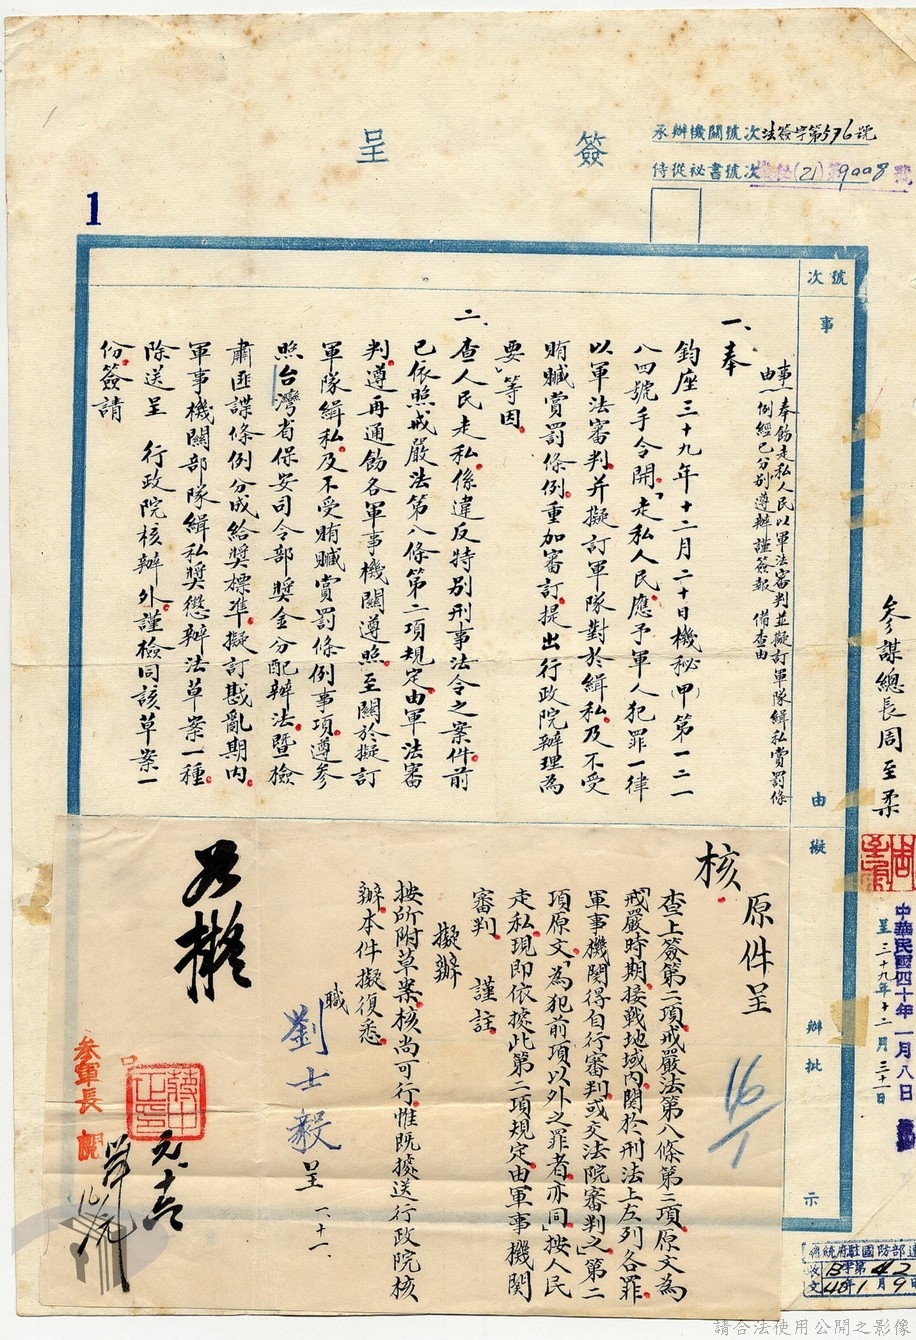 簽呈
承辦機關號次法簽字第576號
侍從祕書號次機秘(21)第9008號
1
號次
事由
擬辦
批示
事由 一、奉飭走私人民以軍法審判並擬訂軍隊緝私賞罰條
例一經已分別遵辦謹簽報 備查由
一、奉
鈞座三十九年十二月二十日機秘(甲)第一二一
八四號手令開「走私人民應予軍人犯罪一律
以軍法審判并擬訂軍隊對於緝私及不受
賄贓賞罰條例重加審訂提出行政院辦理為
要」等因
二、查人民走私係違反特別刑事法令之案件前
已依照戒嚴法第八條第二項規定由軍法審
判遵再通飭各軍事機關遵照至關於擬訂
軍隊緝私及不受賄贓賞罰條例事項遵參
照台灣省保安司令部獎金分配辦法暨檢
肅匪諜條例分成給獎標準擬訂戡亂期內
軍事機關部隊緝私獎懲辦法草案一種
除送呈 行政院核辦外謹檢同該草案一
份簽請
核
參謀總長周至柔
中華民國四十年一月八日
呈 三十九年十二月三十一日
原件呈
16/1
查上簽第二項戒嚴法第八條第二項原文為
「戒嚴時期接戰地域內關於刑法上左列各罪
軍事機關得自行審判或交法院審判之」第二
項原文「為犯前項以外之罪者亦同」按人民
走私現即依據此第二項規定由軍事機關
審判 謹註
擬辦
按所附草案核尚可行惟既據送行政院核
辦本件擬復悉
職
劉士毅 呈 一、十一、
如擬
參軍長
元、十六
總統府駐國防部
收文
字第42
40年1月9日
請合法使用公開之影像